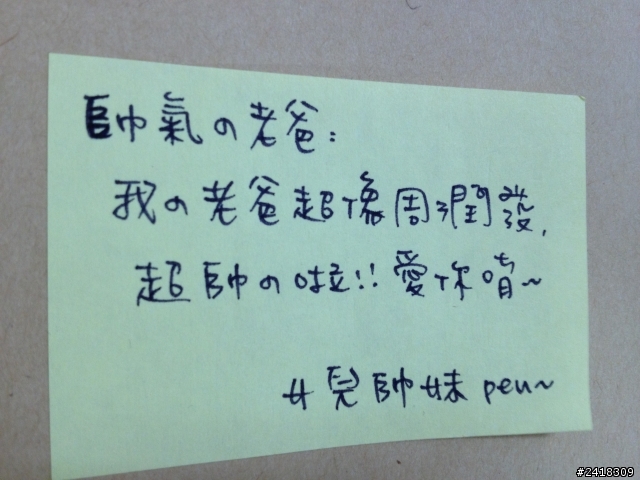 帥氣の老爸：
我の老爸超像周潤發，
超帥の啦!! 愛你唷~
女兒帥妹 peu~
#2418309